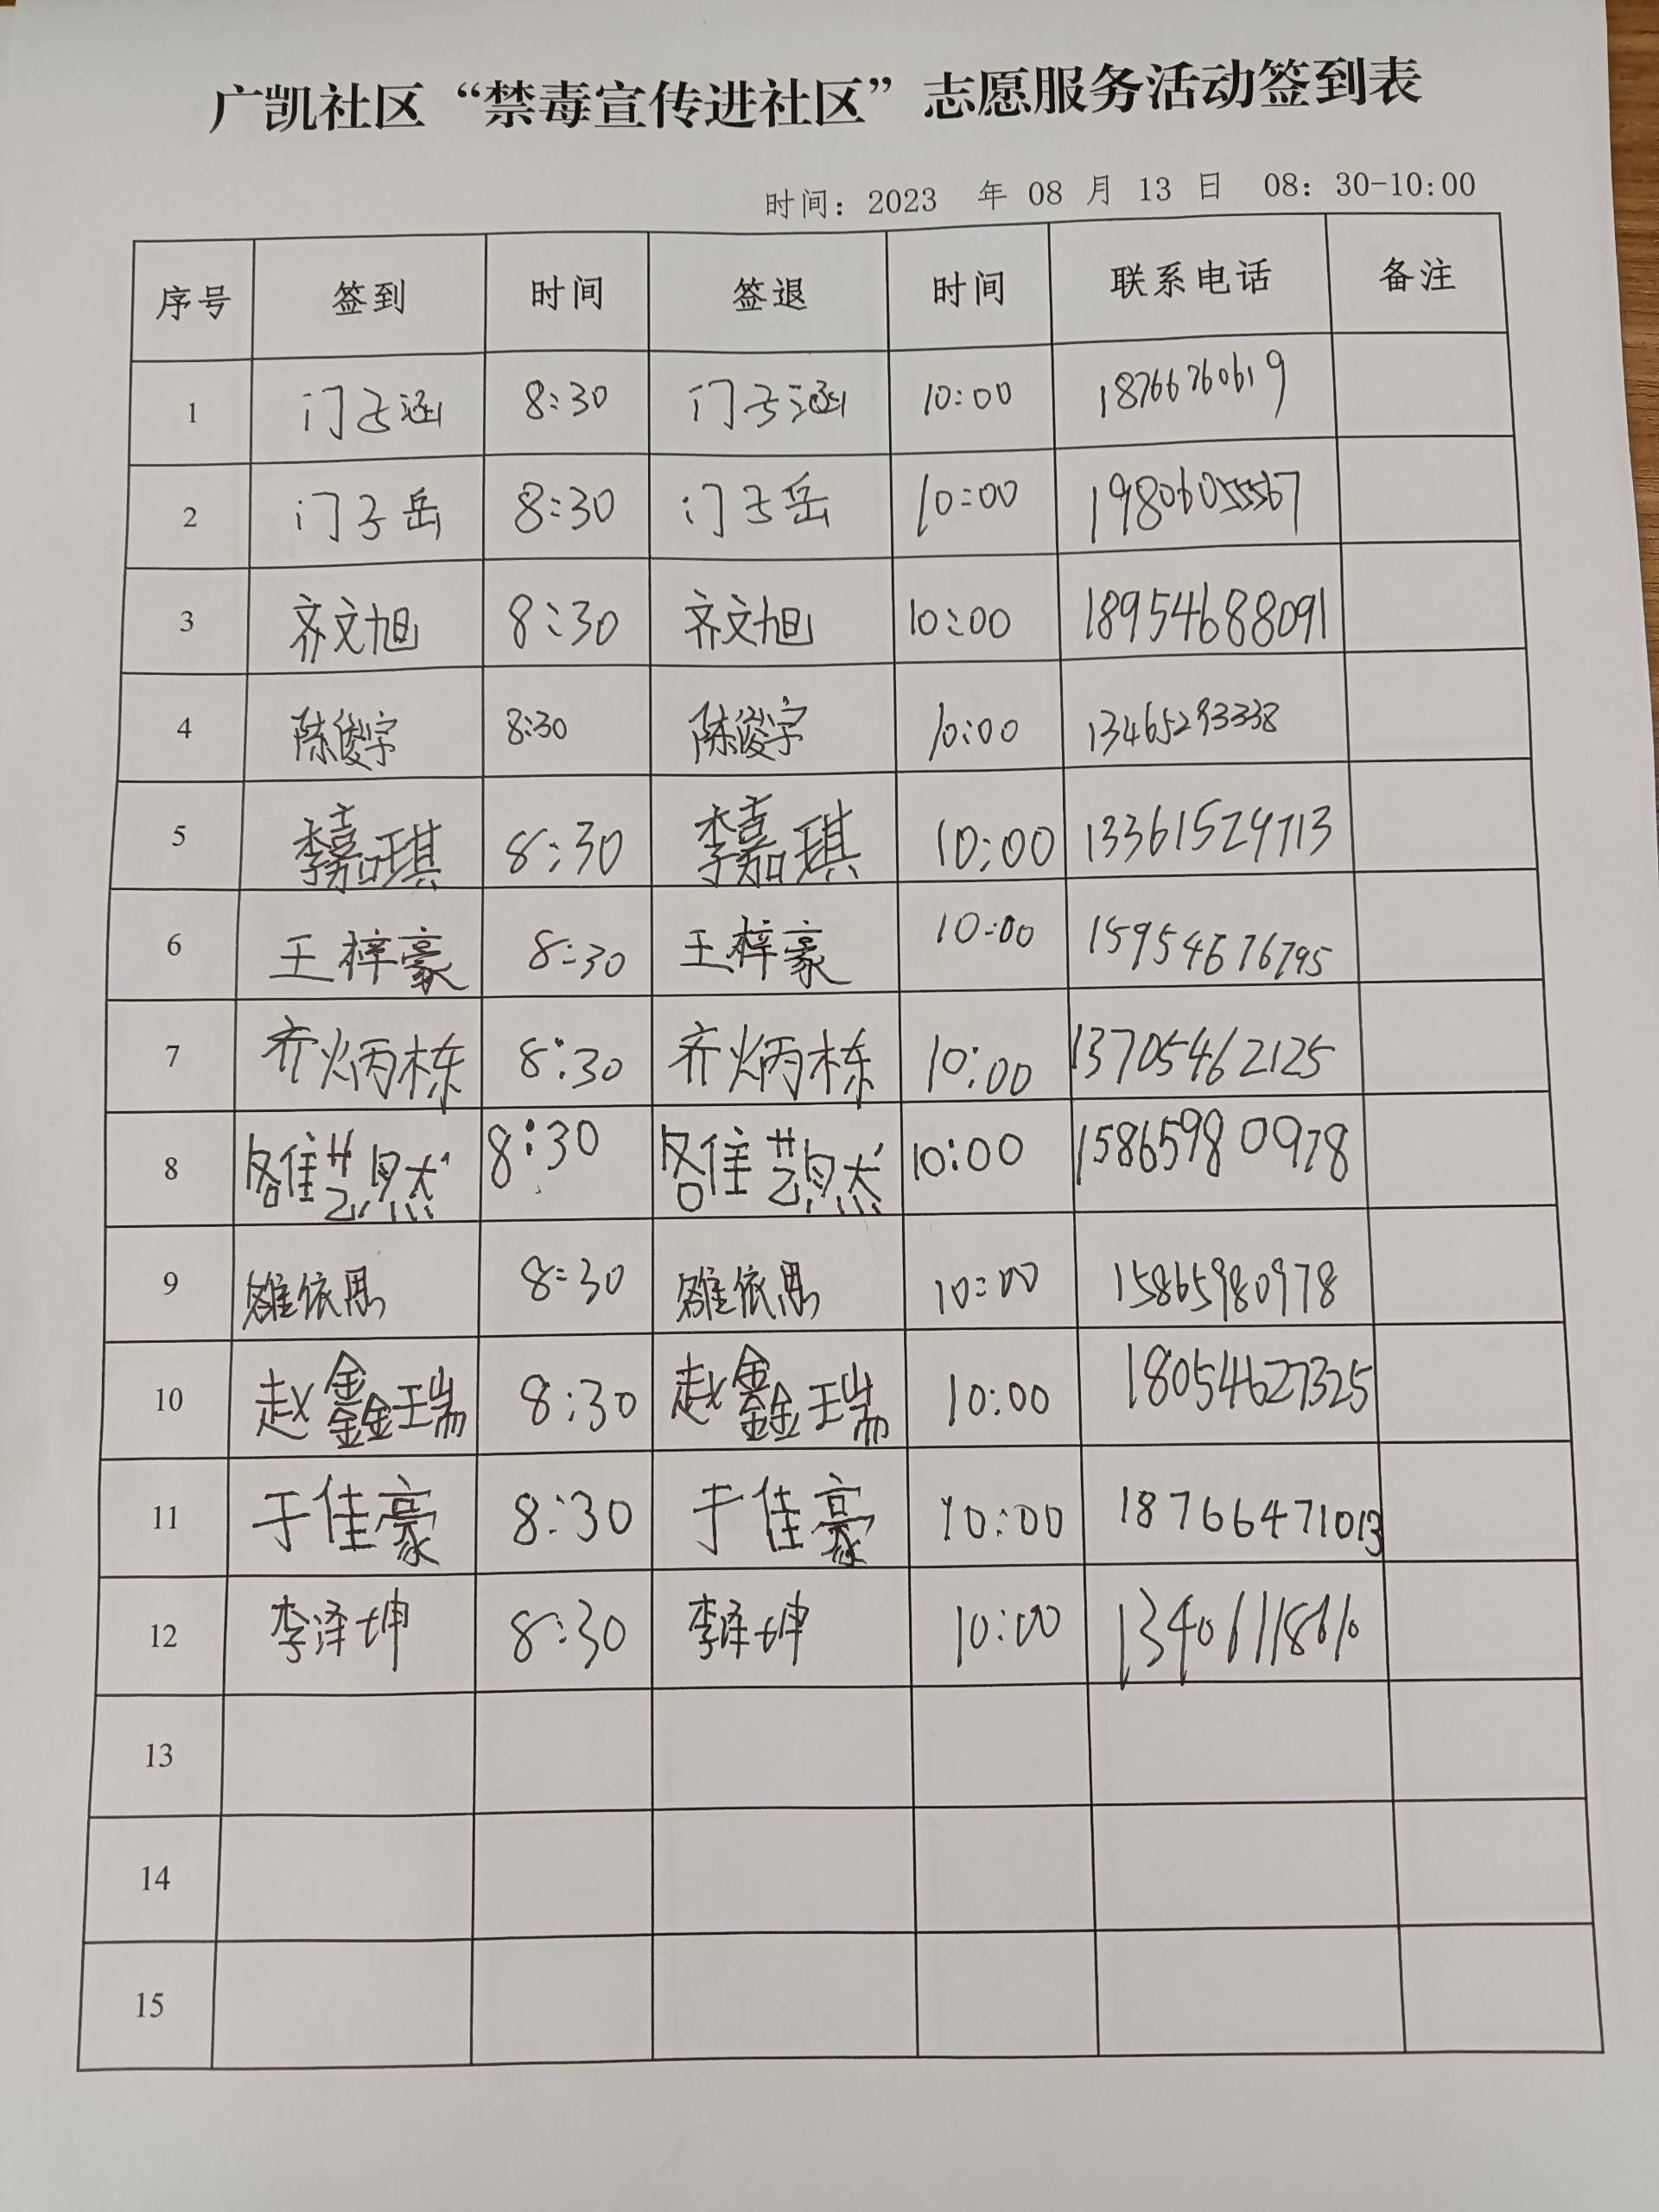 广凯社区“禁毒宣传进社区”志愿服务活动签到表
时间：2023 年 08 月 13 日 08：30-10:00
序号 签到 时间 签退 时间 联系电话 备注
1 门子涵 8:30 门子涵 10:00 18766760619
2 门子岳 8:30 门子岳 10:00 19806055567
3 齐文旭 8:30 齐文旭 10:00 18954688091
4 陈俊宇 8:30 陈俊宇 10:00 13465293338
5 李嘉琪 8:30 李嘉琪 10:00
6 王梓豪 8:30 王梓豪 10:00 15954676795
7 齐炳栋 8:30 齐炳栋 10:00 13705462125
8 8:30 10:00 15865980978
9 8:30 10:00 15865980978
10 赵鑫瑞 8:30 赵鑫瑞 10:00 18054627325
11 于佳豪 8:30 于佳豪 10:00 18766471013
12 李泽坤 8:30 李泽坤 10:00
13
14
15